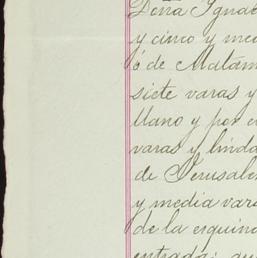 Doña Ignac
y cinco y med
ó de Matam
siete varas y
llano y por e
varas y linda
de Jerusale
y media vara
de la esquina
entrada; qu